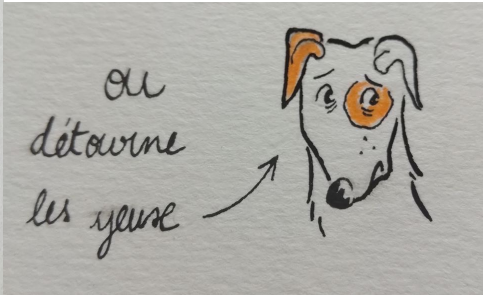 ou
détourne
les yeuse